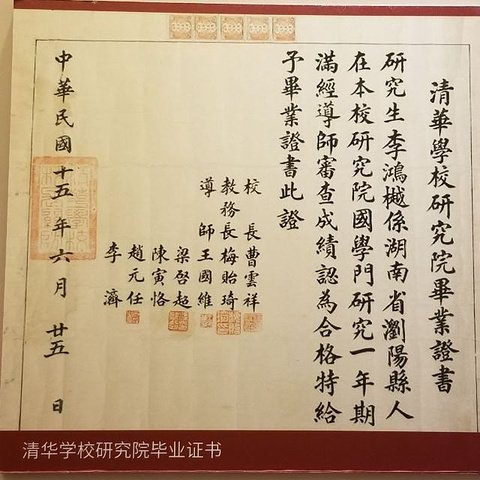 清華學校研究院畢業證書
研究生李鴻樾係湖南省瀏陽縣人
在本校研究院國學門研究一年期
滿經導師審查成績認為合格特給
予畢業證書此證
校長曹雲祥
教務長梅貽琦
導師王國維
梁啓超
陳寅恪
趙元任
李濟
中華民國十五年六月廿五日
清华学校研究院毕业证书